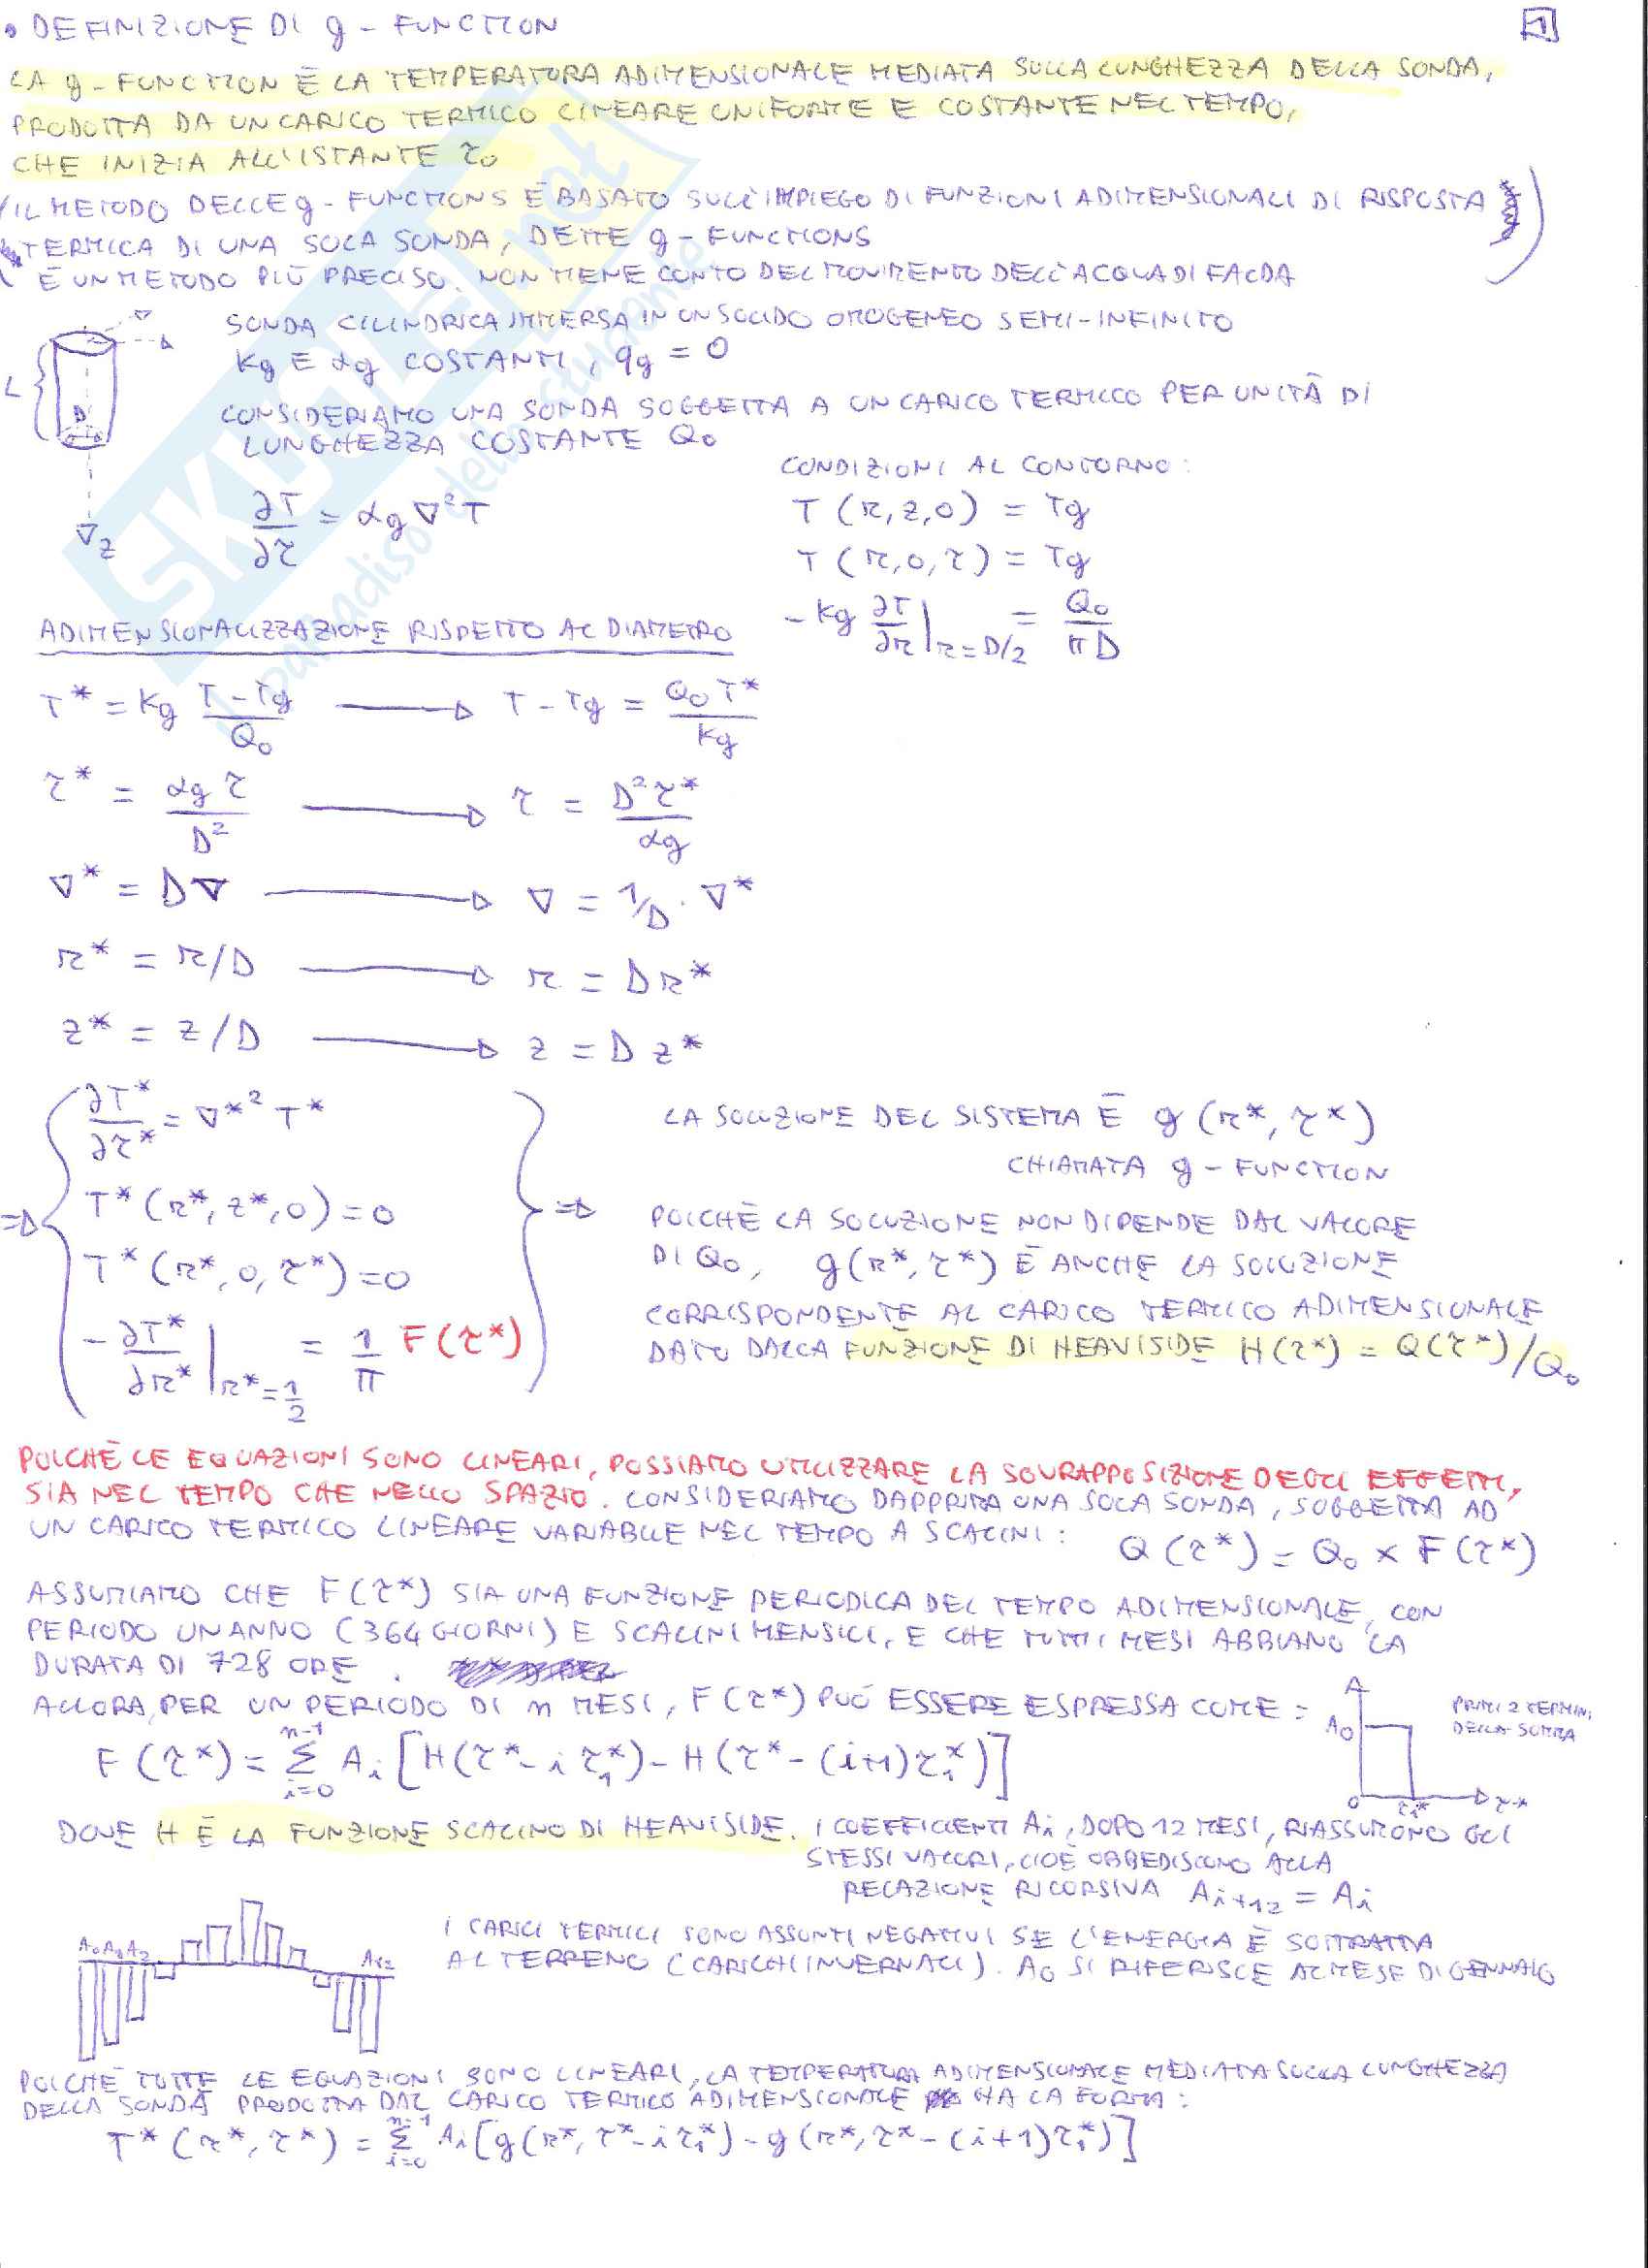 • DEFINIZIONE DI g - FUNCTION
1
LA g - FUNCTION È LA TEMPERATURA ADIMENSIONALE MEDIATA SULLA LUNGHEZZA DELLA SONDA,
PRODOTTA DA UN CARICO TERMICO LINEARE UNIFORME E COSTANTE NEL TEMPO,
CHE INIZIA ALL'ISTANTE τ₀
(IL METODO DELLE g - FUNCTIONS È BASATO SULL'IMPIEGO DI FUNZIONI ADIMENSIONALI DI RISPOSTA
TERMICA DI UNA SOLA SONDA, DETTE g - FUNCTIONS
È UN METODO PIÙ PRECISO. NON TIENE CONTO DEL MOVIMENTO DELL'ACQUA DI FALDA)
SONDA CILINDRICA IMMERSA IN UN SOLIDO OMOGENEO SEMI-INFINITO
kg E αg COSTANTI, qg = 0
L
D
z
CONSIDERIAMO UNA SONDA SOGGETTA A UN CARICO TERMICO PER UNITÀ DI
LUNGHEZZA COSTANTE Q₀
CONDIZIONI AL CONTORNO:
∂T/∂τ = αg ∇²T
T (r,z,0) = Tg
T (r,0,τ) = Tg
-kg ∂T/∂r |r=D/2 = Q₀/πD
ADIMENSIONALIZZAZIONE RISPETTO AL DIAMETRO
T* = kg (T-Tg)/Q₀ → T - Tg = Q₀ T*/kg
τ* = αg τ/D² → τ = D² τ*/αg
∇* = D∇ → ∇ = 1/D · ∇*
r* = r/D → r = D r*
z* = z/D → z = D z*
∂T*/∂τ* = ∇*² T*
⇒ T* (r*, z*, 0) = 0
T* (r*, 0, τ*) = 0
-∂T*/∂r* |r*=1/2 = 1/π F(τ*)
⇒ LA SOLUZIONE DEL SISTEMA È g (r*, τ*)
CHIAMATA g - FUNCTION
POICHÈ LA SOLUZIONE NON DIPENDE DAL VALORE
DI Q₀, g(r*, τ*) È ANCHE LA SOLUZIONE
CORRISPONDENTE AL CARICO TERMICO ADIMENSIONALE
DATO DALLA FUNZIONE DI HEAVISIDE H(τ*) = Q(τ*)/Q₀
POICHÈ LE EQUAZIONI SONO LINEARI, POSSIAMO UTILIZZARE LA SOVRAPPOSIZIONE DEGLI EFFETTI,
SIA NEL TEMPO CHE NELLO SPAZIO. CONSIDERIAMO DAPPRIMA UNA SOLA SONDA, SOGGETTA AD
UN CARICO TERMICO LINEARE VARIABILE NEL TEMPO A SCALINI: Q(τ*) = Q₀ × F(τ*)
ASSUMIAMO CHE F(τ*) SIA UNA FUNZIONE PERIODICA DEL TEMPO ADIMENSIONALE, CON
PERIODO UN ANNO (364 GIORNI) E SCALINI MENSILI, E CHE TUTTI I MESI ABBIANO LA
DURATA DI 728 ORE.
ALLORA, PER UN PERIODO DI n MESI, F(τ*) PUÒ ESSERE ESPRESSA COME:
F(τ*) = Σ_{i=0}^{n-1} Ai [H(τ* - i τ₁*) - H(τ* - (i+1)τ₁*)]
A
A₀
0
τ₁*
τ*
PRIMI 2 TERMINI
DELLA SOMMA
DOVE H È LA FUNZIONE SCALINO DI HEAVISIDE. I COEFFICIENTI Ai, DOPO 12 MESI, RIASSUMONO GLI
STESSI VALORI, CIOÈ OBBEDISCONO ALLA
RELAZIONE RICORSIVA Ai+12 = Ai
A₀ A₁ A₂
A₁₂
I CARICI TERMICI SONO ASSUNTI NEGATIVI SE L'ENERGIA È SOTTRATTA
AL TERRENO (CARICHI INVERNALI). A₀ SI RIFERISCE AL MESE DI GENNAIO
POICHÈ TUTTE LE EQUAZIONI SONO LINEARI, LA TEMPERATURA ADIMENSIONALE MEDIATA SULLA LUNGHEZZA
DELLA SONDA PRODOTTA DAL CARICO TERMICO ADIMENSIONALE HA LA FORMA:
T* (r*, τ*) = Σ_{i=0}^{n-1} Ai [g(r*, τ* - i τ₁*) - g(r*, τ* - (i+1)τ₁*)]